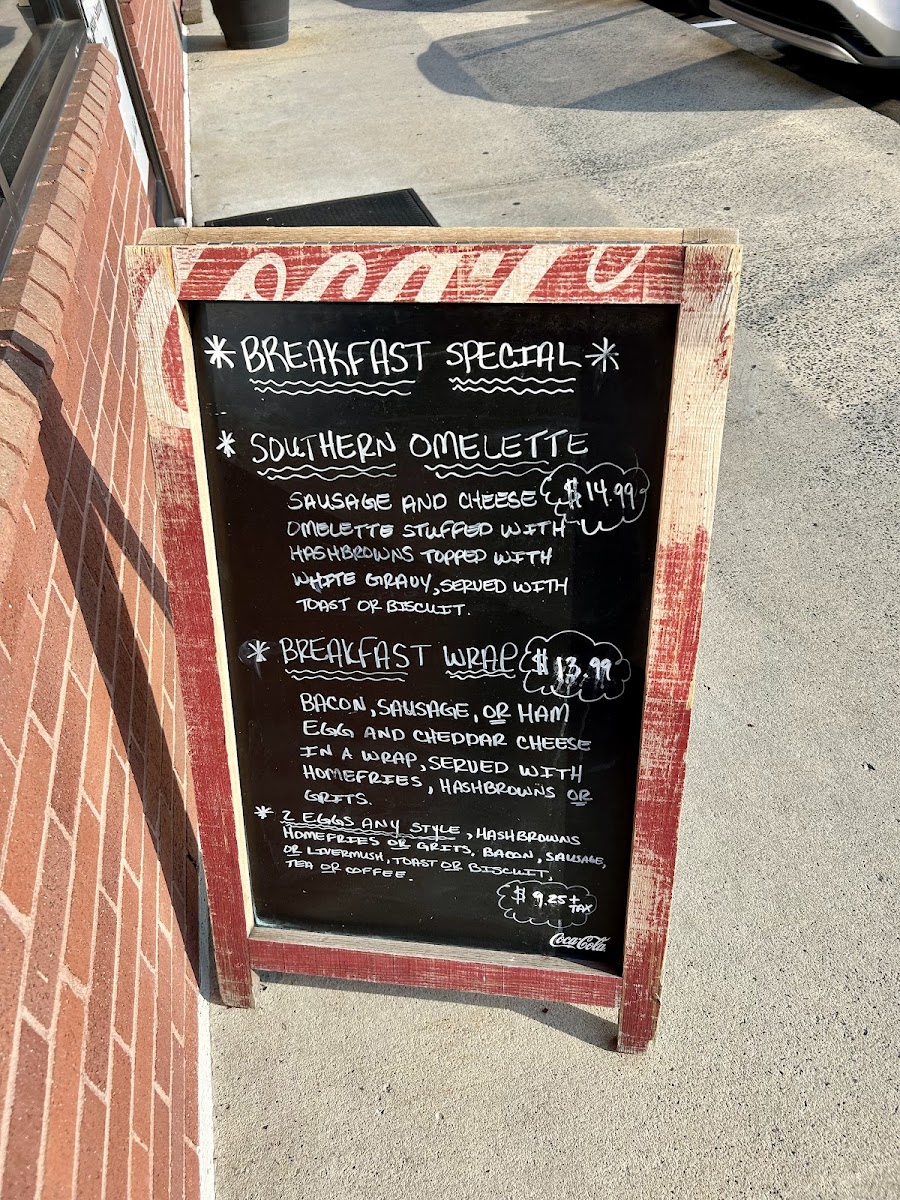 Coca-Cola
* BREAKFAST SPECIAL *
* SOUTHERN OMELETTE
SAUSAGE AND CHEESE $14.99
OMELETTE STUFFED WITH
HASHBROWNS TOPPED WITH
WHITE GRAVY, SERVED WITH
TOAST OR BISCUIT.
* BREAKFAST WRAP $13.99
BACON, SAUSAGE, OR HAM
EGG AND CHEDDAR CHEESE
IN A WRAP, SERVED WITH
HOMEFRIES, HASHBROWNS OR
GRITS.
* 2 EGGS ANY STYLE, HASHBROWNS
HOMEFRIES OR GRITS, BACON, SAUSAGE,
OR LIVERMUSH, TOAST OR BISCUIT,
TEA OR COFFEE.
$9.25 + TAX
Coca-Cola